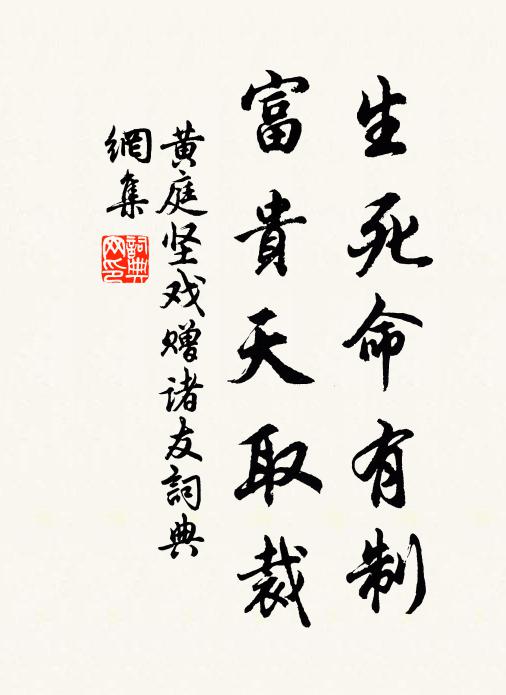 生死命有制
富貴天取裁
黄庭坚戏赠诸友詞典
網集
詞典
网印